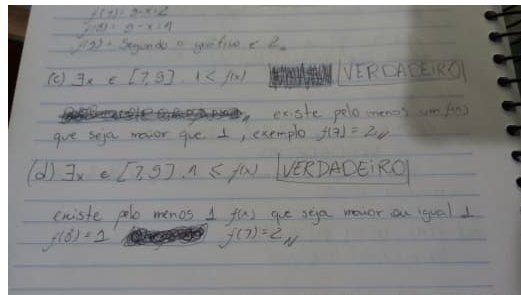 f(7) = 9-x=2
f(8) = 9-x=1
f(9) = Segundo o gráfico é 2
(c) ∃x ∈ [7,9] . 1 < f(x) VERDADEIRO
existe pelo menos um f(x)
que seja maior que 1, exemplo f(7) = 2
(d) ∃x ∈ [7,9] . 1 ≤ f(x) VERDADEIRO
existe pelo menos 1 f(x) que seja maior ou igual 1
f(8) = 1 f(7) = 2